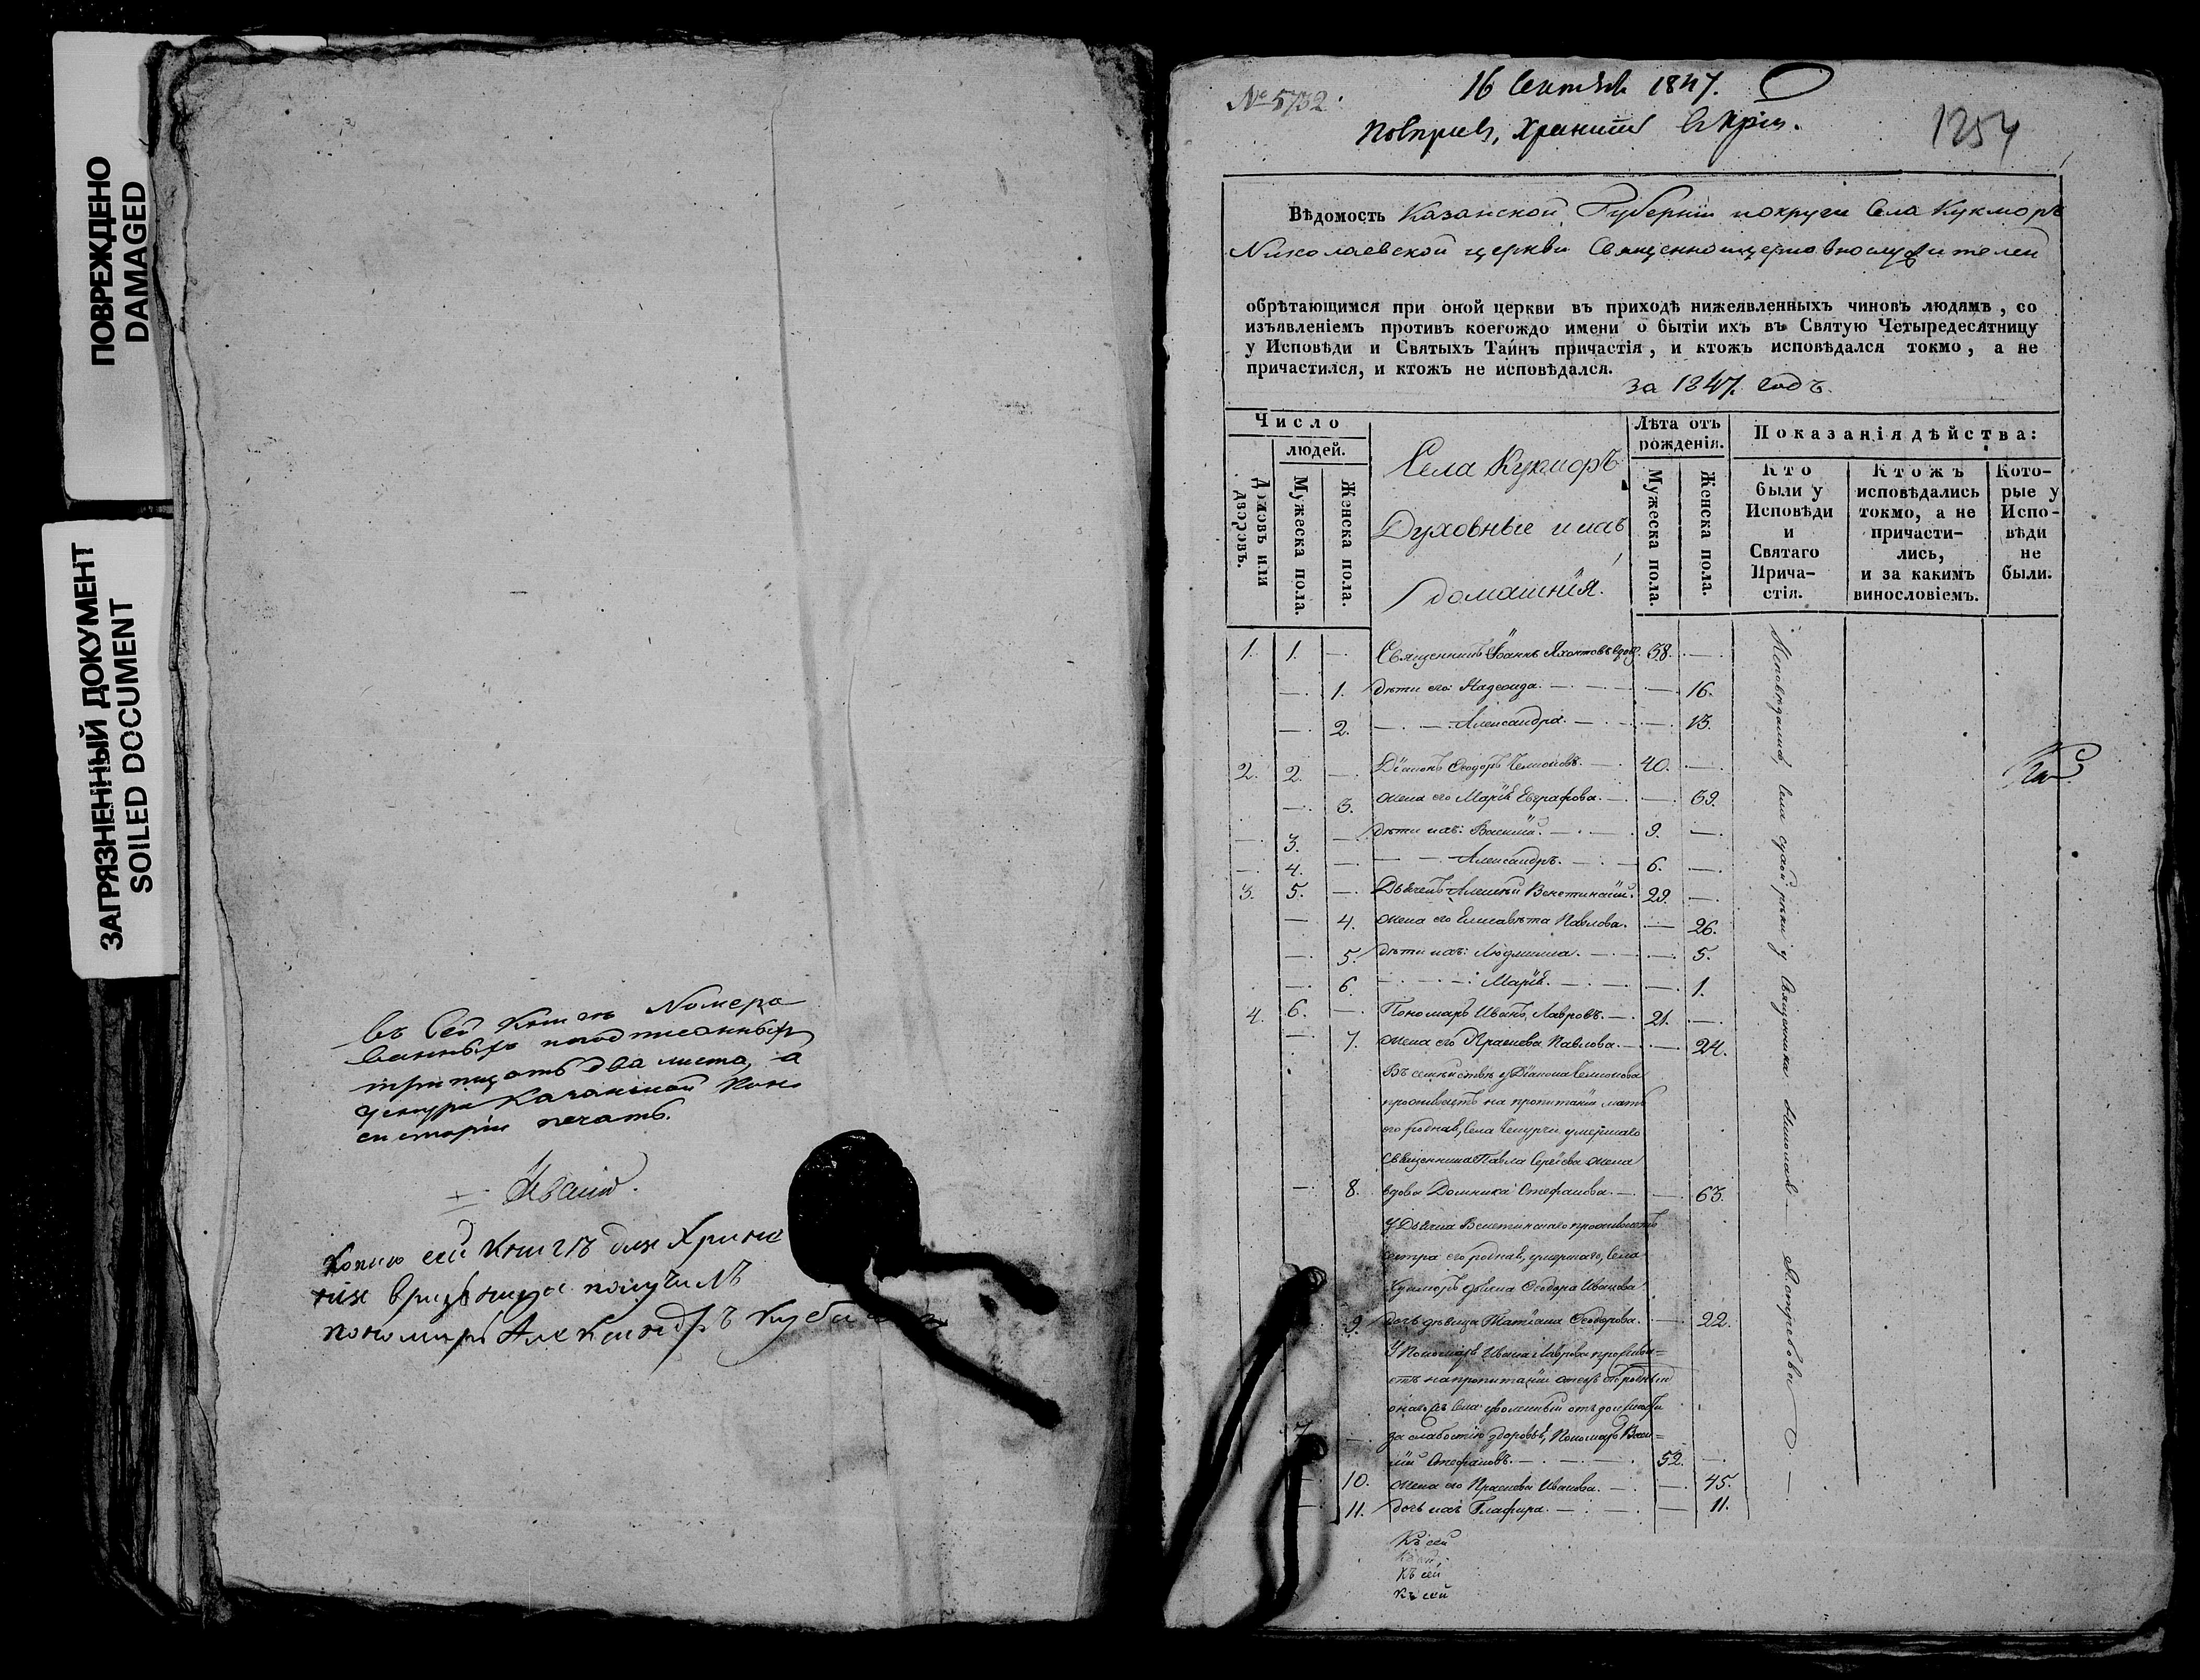 ПОВРЕЖДЕНО
DAMAGED
ЗАГРЯЗНЕННЫЙ ДОКУМЕНТ
SOILED DOCUMENT
въ сей книгѣ Номеро
ванныхъ и подписанныхъ
тритцать два листа, а
Казанской Кон
систоріи печать.
Копію сей книгъ для Хране
нія получилъ
пономарь Александръ
№ 5732.
16 Сентября 1847.
1254
Вѣдомость Казанской Губерніи и округи Села Кукморъ
Николаевской церкви Священноицерковнослужителей
обрѣтающимся при оной церкви въ приходѣ нижеявленныхъ чиновъ людямъ, со
изъявленіемъ противъ коегождо имени о бытіи ихъ въ Святую Четыредесятницу
у Исповѣди и Святыхъ Таинъ причастія, и ктожъ исповѣдался токмо, а не
причастился, и ктожъ не исповѣдался.
за 1847. годъ.
Число
людей.
Домовъ или дворовъ.
Мужеска пола.
Женска пола.
Села Кукморъ
Духовные и ихъ
домашнія.
Лѣта отъ
рожденія.
Мужеска пола.
Женска пола.
Показанія дѣйства:
Кто
были у
Исповѣди
и
Святаго
Прича-
стія.
Ктожъ
исповѣдались
токмо, а не
причасти-
лись,
и за какимъ
винословіемъ.
Кото-
рые у
Испо-
вѣди
не
были.
1. 1. — Священникъ Іоаннъ Яхонтовъ вдов. 38. —
— 1. дѣти его: Надежда. — 16.
— 2. — Александра. — 13.
2. 2. — Діаконъ Ѳеодоръ 40. —
— 3. жена его Марія Евграфова. — 39.
— 3. — дѣти ихъ: Василій. 9. —
— 4. — Александръ. 6. —
3. 5. — Дьячекъ Алексѣй Венетинскій. 29. —
— 4. жена его Елисавета Павлова. — 26.
— 5. дѣти ихъ: Людмилла. — 5.
— 6. — Марія. — 1.
4. 6. — Пономарь Иванъ Лавровъ. 21. —
— 7. жена его Прасковья Павлова. — 24.
Въ семействѣ у Діакона
проживаетъ на пропитаніи мать
его родная, Села умершаго
Священника Павла Сергіева жена
— 8. вдова Домника Стефанова. — 63.
У Дьячка Венетинскаго проживаетъ
сестра его родная, умершаго, Села
Кукморъ дьячка Ѳеодора Иванова
9. дочь дѣвица Татіана Ѳеодорова. — 22.
У Пономаря Ивана Лаврова прожива=
етъ на пропитаніи отецъ его родный
онагожъ Села уволенный отъ должности
7. — за слабостію здоровья, Пономарь Васи=
лій Стефановъ. 52. —
— 10. жена его Прасковья Иванова. — 45.
— 11. дочь ихъ Глафира. — 11.
Исповѣдались, Села у Священника Николая
Къ сей
Къ сей
Къ сей